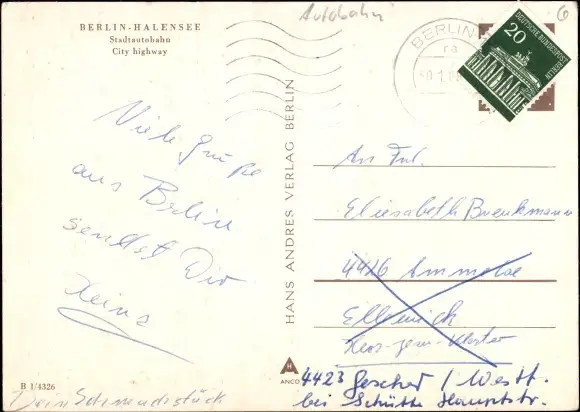 BERLIN-HALENSEE
Stadtautobahn
City highway
Autobahn
6
BERLIN
20
DEUTSCHE BUNDESPOST BERLIN
Viele Grüße
aus Berlin
sendet Dir
Heinz
HANS ANDRES VERLAG BERLIN
An Frl.
Elisabeth Brenkmann
4426 Ammeloe
Ellewick
Kloster
4423 Gescher / Westf.
bei Schütte Hauptstr.
H
ANCO
B 1/4326
Dein Schmuckstück